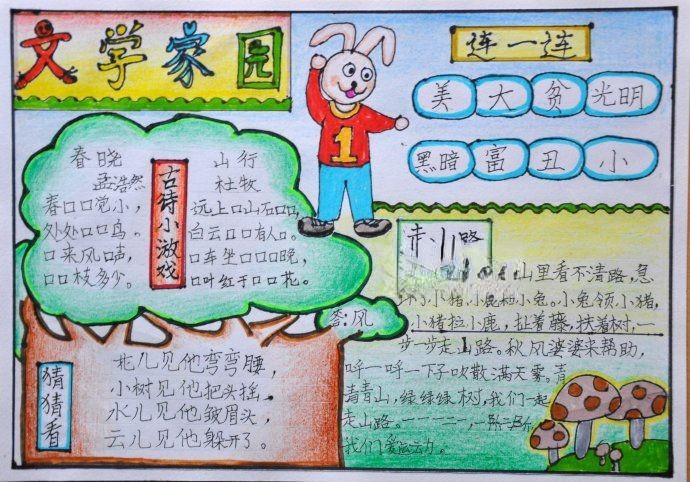 文学家园
连一连
美 大 贫 光明
黑暗 富 丑 小
古诗小游戏
春晓
孟浩然
春口口觉小,
处处口口鸟。
口来风口声,
口口枝多少。
山行
杜牧
远上口山石口口,
白云口口有人口。
口车坐口口口晚,
口叶红于口口花。
答:风
猜猜看
花儿见他弯弯腰,
小树见他把头摇,
水儿见他皱眉头,
云儿见他躲开了。
路
山里看不清路,急
小猪,小鹿和小兔。小兔领小猪,
小猪拉小鹿,扯着藤,扶着树,一
步一步走山路。秋风婆婆来帮助,
呼一呼一下子吹散满天雾。青
青青山,绿绿绿树,我们一起
走山路。一一一二一,
我们爱运动。